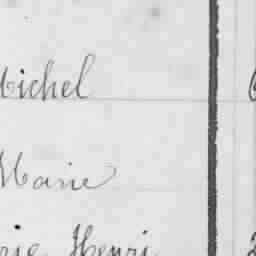 Michel
Marie
rie Henri